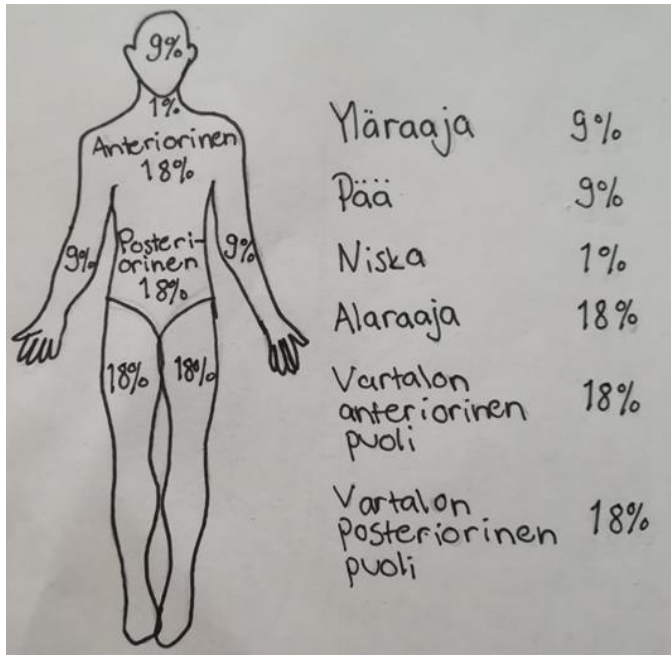 9%
1%
Anteriorinen
18%
Posteri-
orinen
18%
9%
9%
18%
18%
Yläraaja 9%
Pää 9%
Niska 1%
Alaraaja 18%
Vartalon
anteriorinen
puoli
18%
Vartalon
posteriorinen
puoli
18%